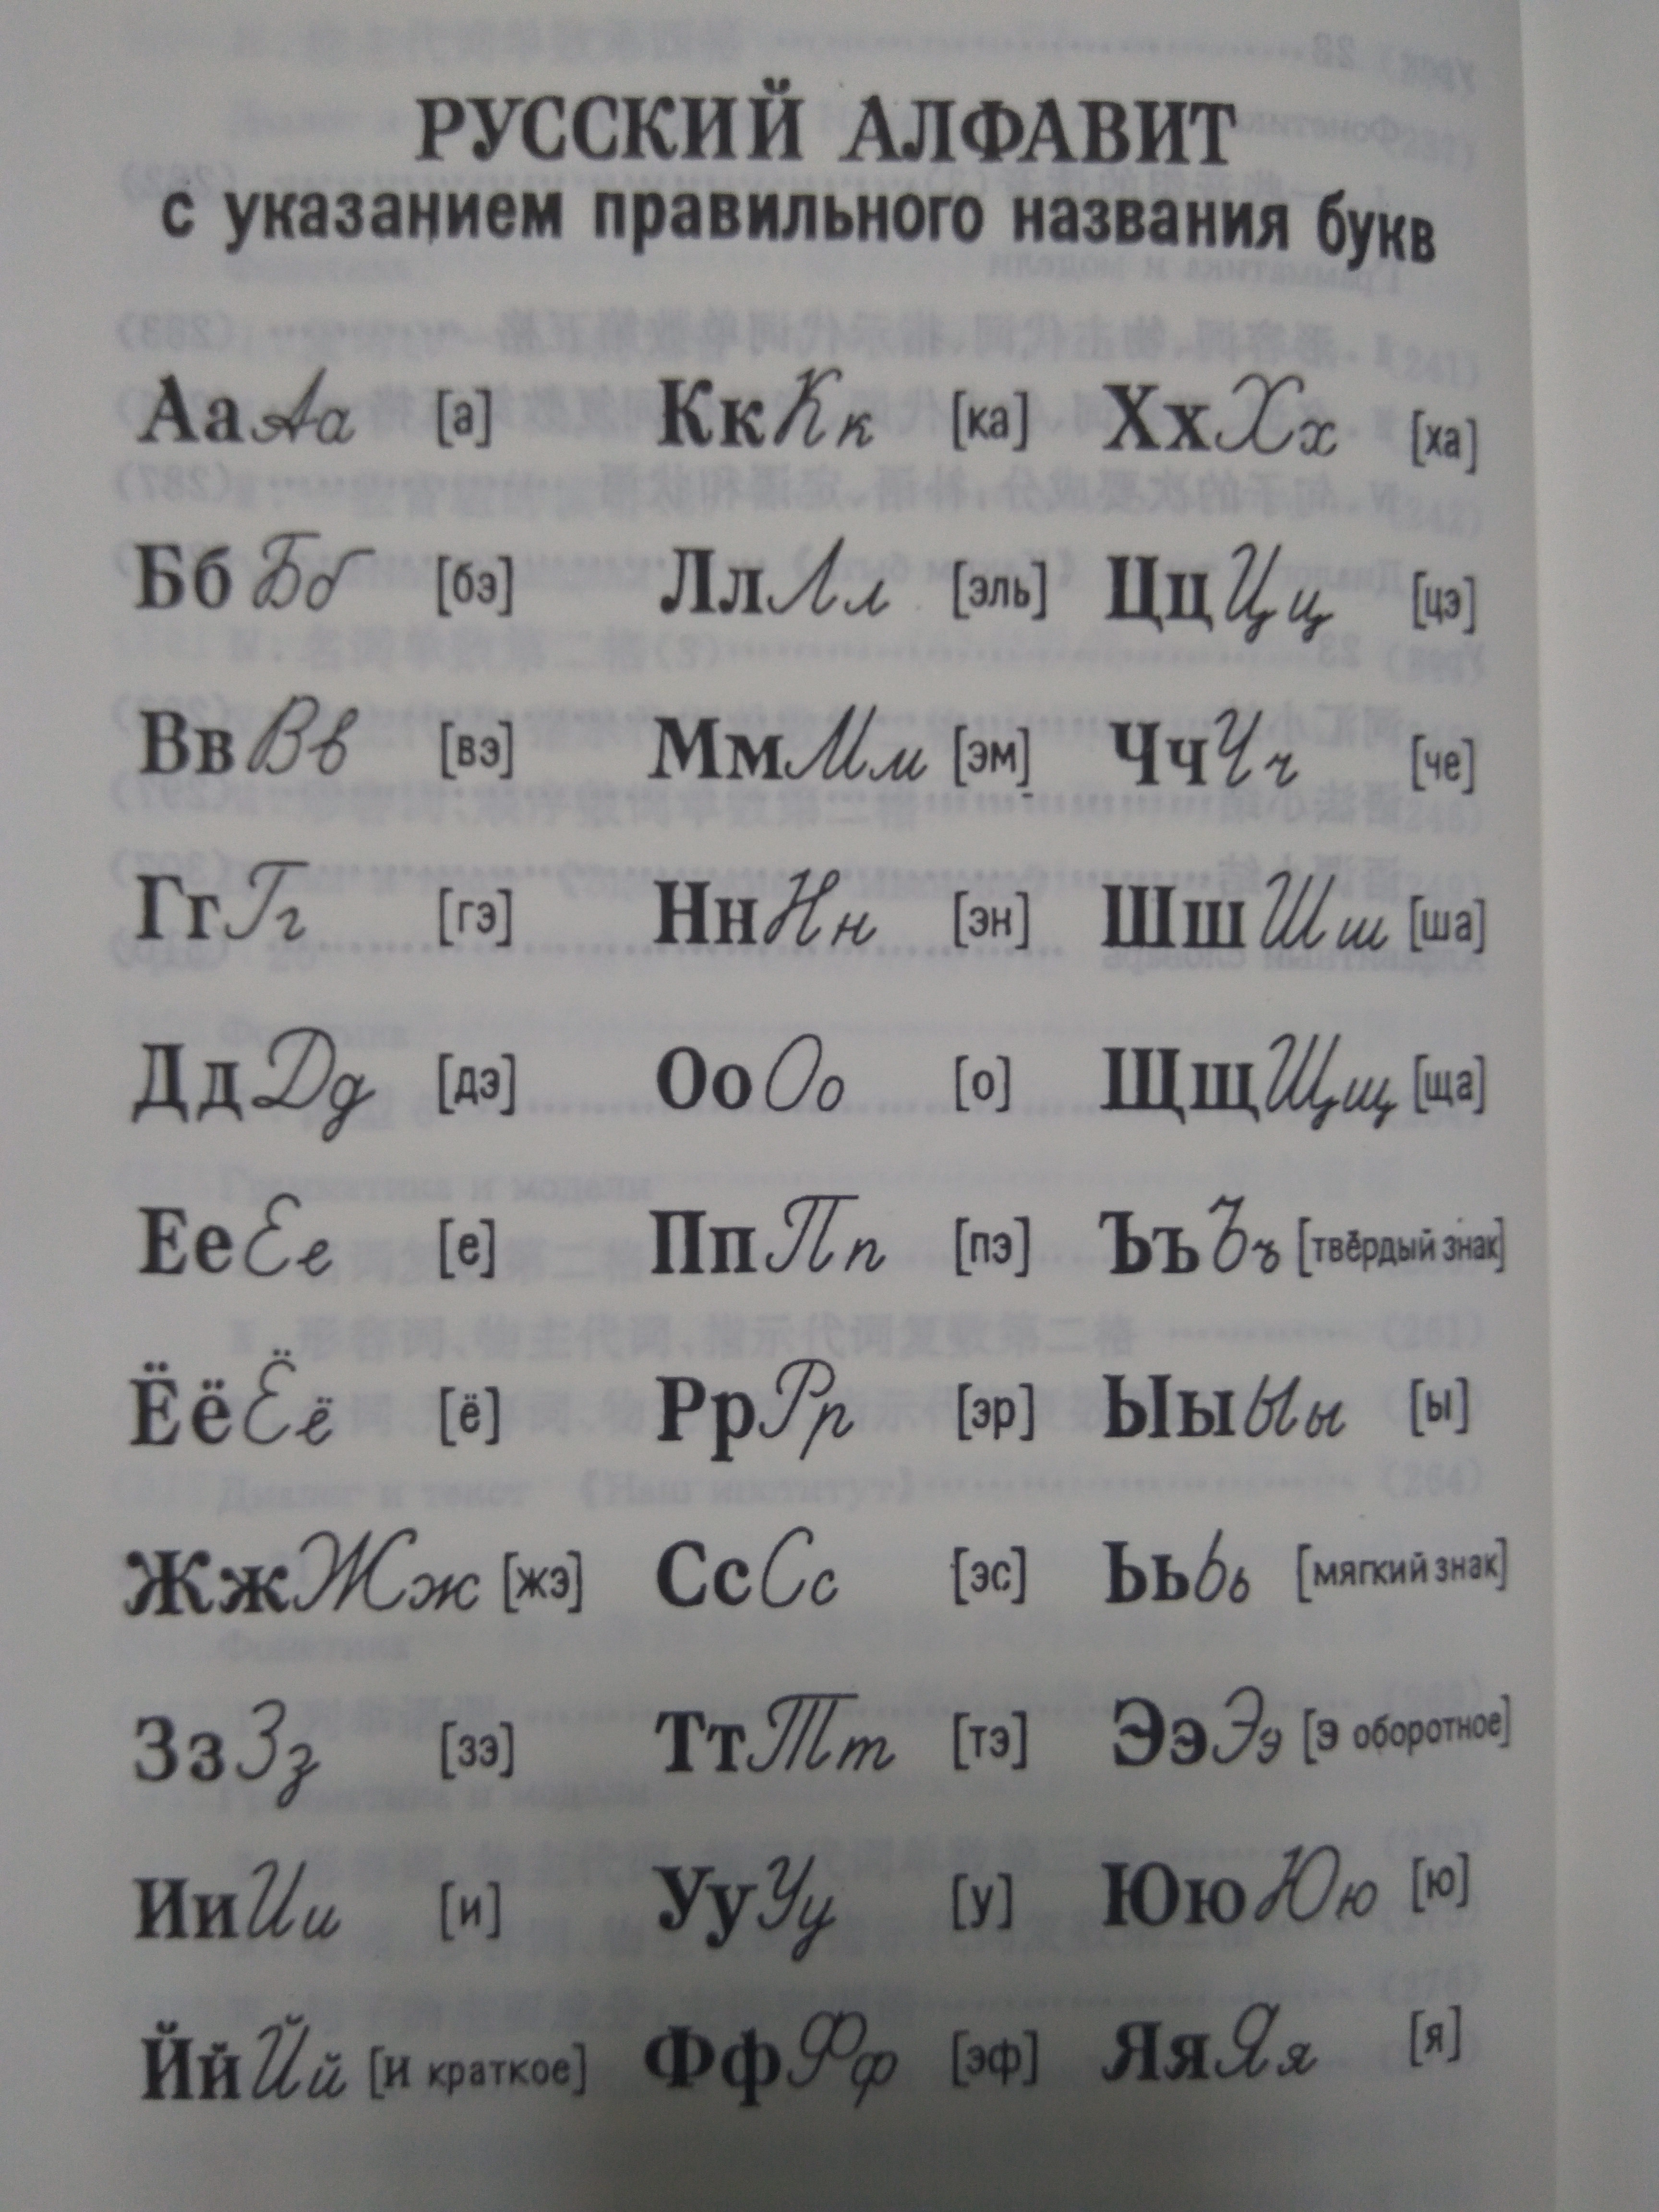 РУССКИЙ АЛФАВИТ
с указанием правильного названия букв
Аа Аа [а] Кк Кк [ка] Хх Хх [ха]
Бб Бб [бэ] Лл Лл [эль] Цц Цц [цэ]
Вв Вв [вэ] Мм Мм [эм] Чч Чч [че]
Гг Гг [гэ] Нн Нн [эн] Шш Шш [ша]
Дд Дд [дэ] Оо Оо [о] Щщ Щщ [ща]
Ее Ее [е] Пп Пп [пэ] Ъъ Ъъ [твёрдый знак]
Ёё Ёё [ё] Рр Рр [эр] Ыы Ыы [ы]
Жж Жж [жэ] Сс Сс [эс] Ьь Ьь [мягкий знак]
Зз Зз [зэ] Тт Тт [тэ] Ээ Ээ [э оборотное]
Ии Ии [и] Уу Уу [у] Юю Юю [ю]
Йй Йй [и краткое] Фф Фф [эф] Яя Яя [я]